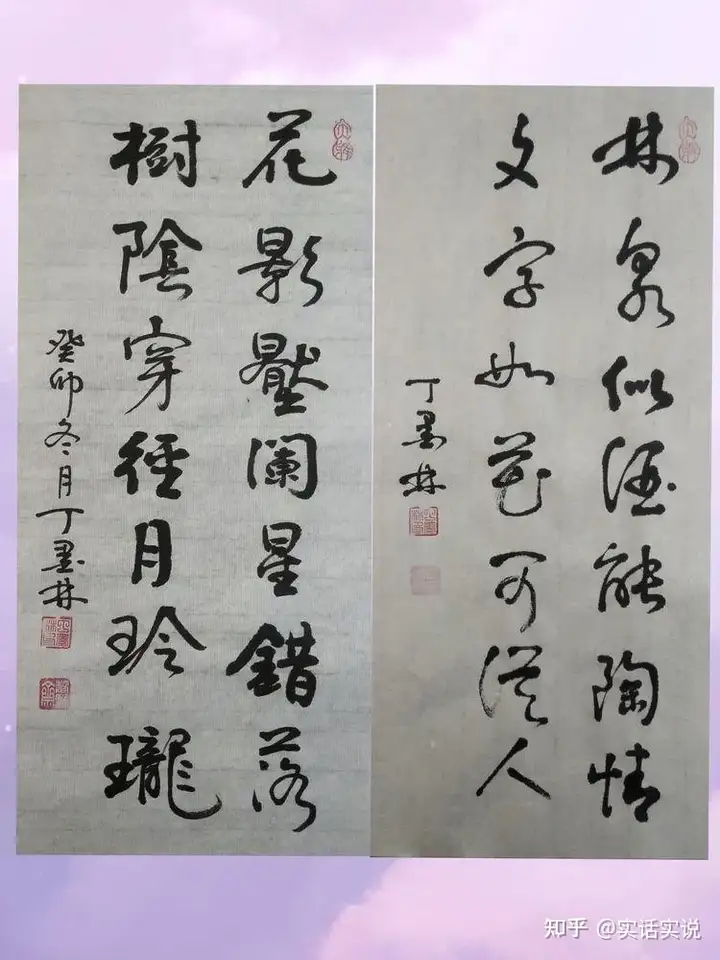 林泉似酒能陶情
文字如花可從人
丁墨林
花影壓闌星錯落
樹陰穿徑月玲瓏
癸卯冬月丁墨林
知乎 @实话实说